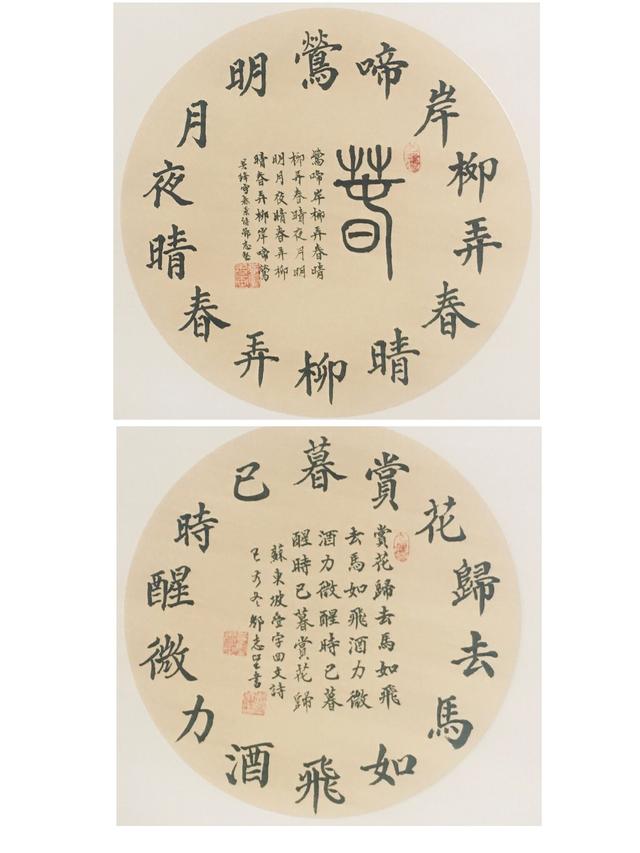 鶯啼岸柳弄春晴柳弄春晴夜月明
春
鶯啼岸柳弄春晴
柳弄春晴夜月明
明月夜晴春弄柳
晴春弄柳岸啼鶯
吳絳雪春景詩鄧志
賞花歸去馬如飛酒力微醒時已暮
賞花歸去馬如飛
去馬如飛酒力微
酒力微醒時已暮
醒時已暮賞花歸
蘇東坡疊字回文詩
己亥冬鄧志書